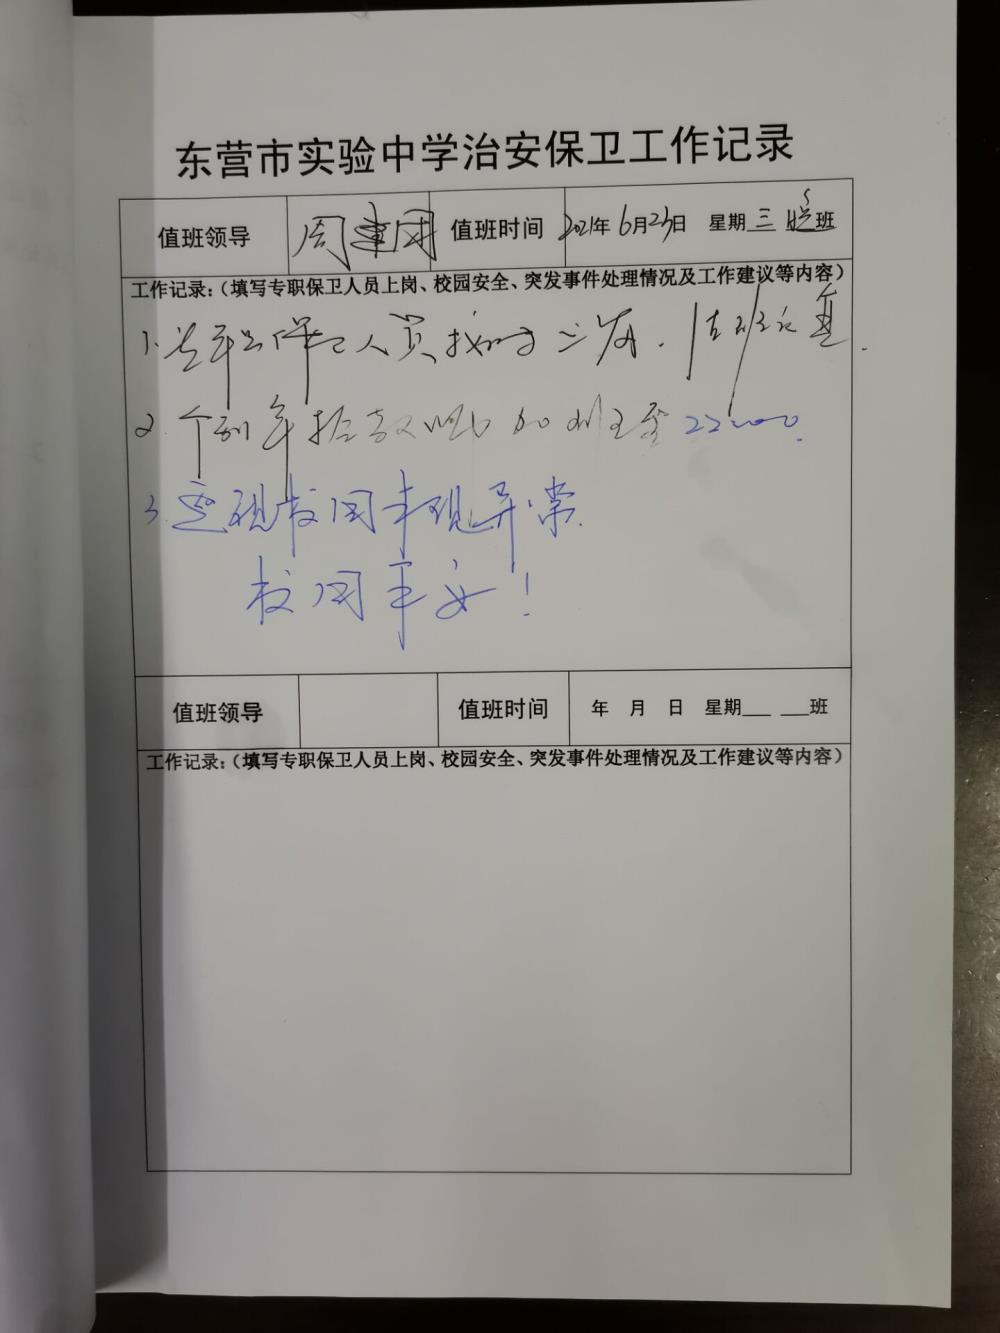 东营市实验中学治安保卫工作记录
值班领导 周建国 值班时间 2021年6月23日 星期三 晚班
工作记录:(填写专职保卫人员上岗、校园安全、突发事件处理情况及工作建议等内容)
1. 保卫人员按时上岗.
2. 个别年 加班至22:00.
3. 校园未现异常.
校园平安!
值班领导 值班时间 年 月 日 星期___ ___班
工作记录:(填写专职保卫人员上岗、校园安全、突发事件处理情况及工作建议等内容)